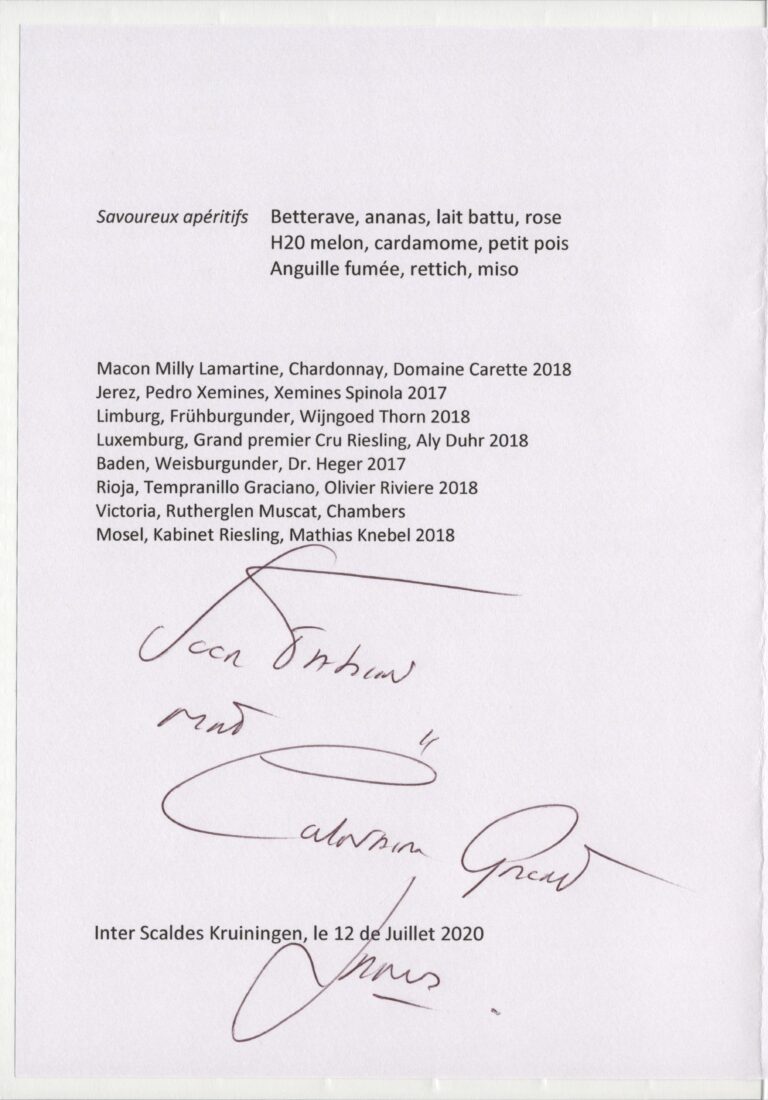 Savoureux apéritifs Betterave, ananas, lait battu, rose
H20 melon, cardamome, petit pois
Anguille fumée, rettich, miso
Macon Milly Lamartine, Chardonnay, Domaine Carette 2018
Jerez, Pedro Xemines, Xemines Spinola 2017
Limburg, Frühburgunder, Wijngoed Thorn 2018
Luxemburg, Grand premier Cru Riesling, Aly Duhr 2018
Baden, Weisburgunder, Dr. Heger 2017
Rioja, Tempranillo Graciano, Olivier Riviere 2018
Victoria, Rutherglen Muscat, Chambers
Mosel, Kabinet Riesling, Mathias Knebel 2018
Inter Scaldes Kruiningen, le 12 de Juillet 2020